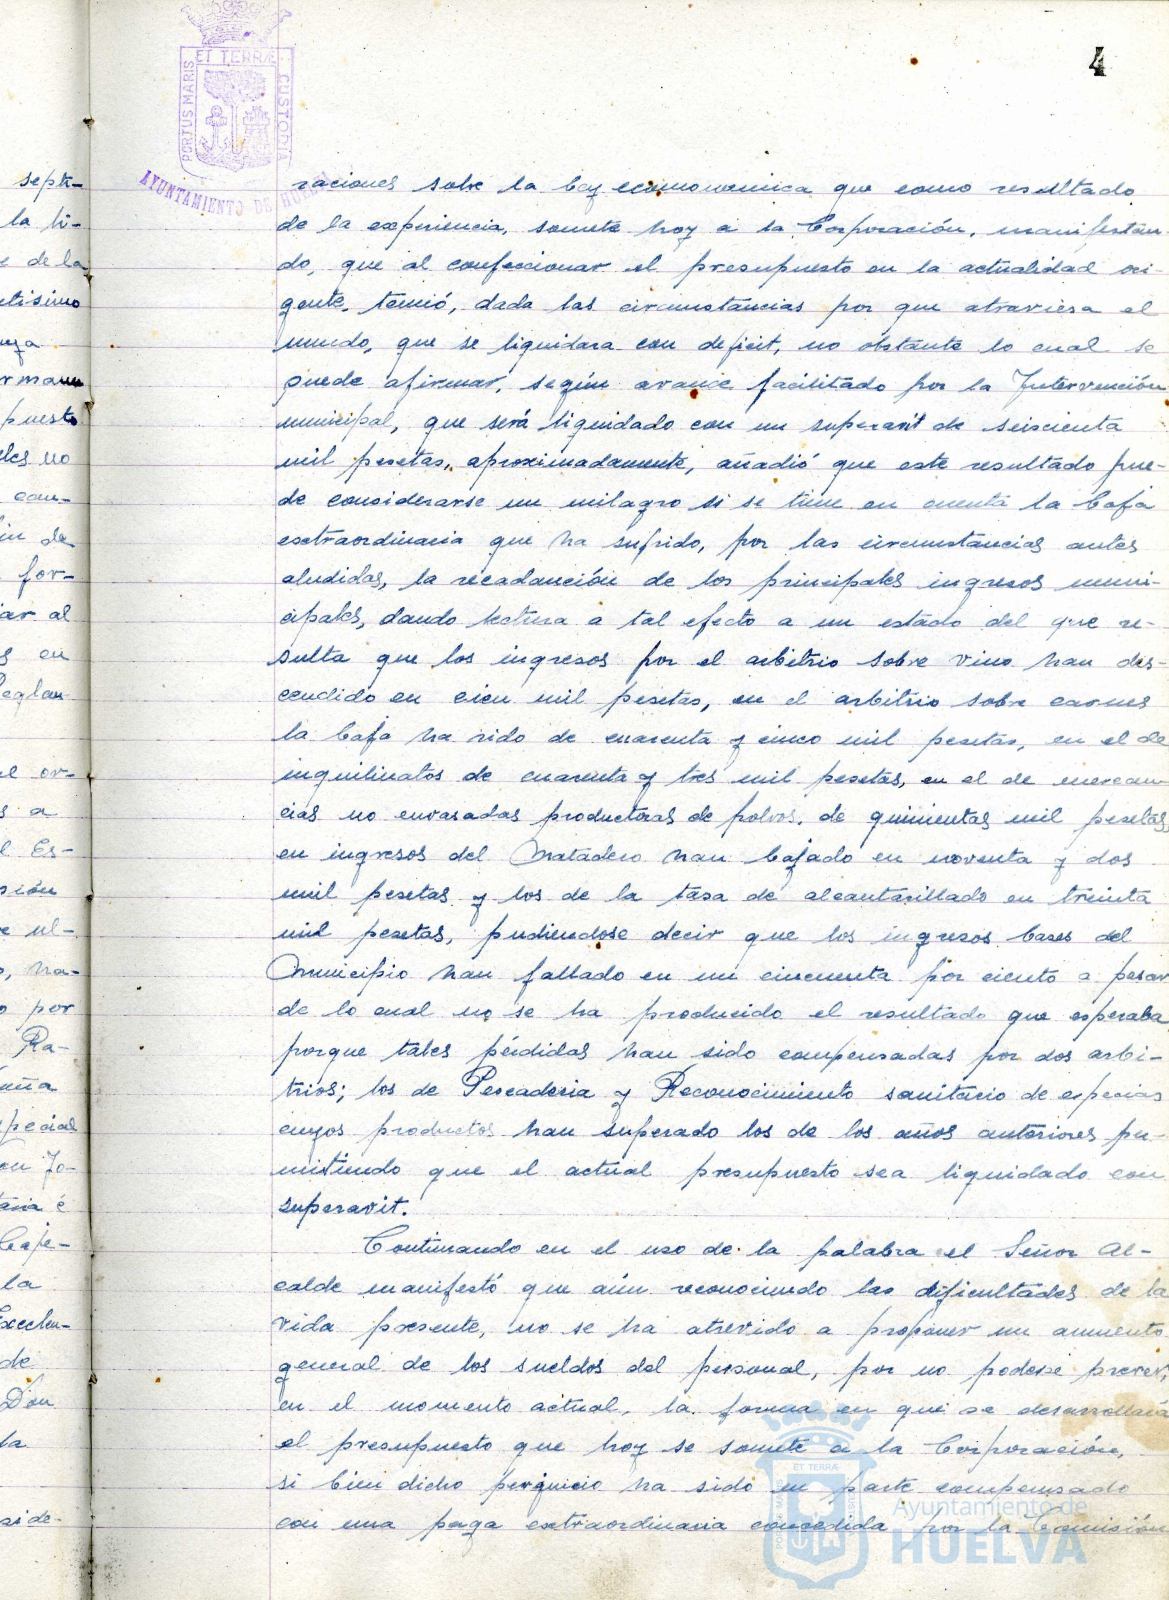 4
PORTUS MARIS
ET TERRÆ
CUSTODIA
AYUNTAMIENTO DE HUELVA
raciones sobre la Ley economonica que como resultado
de la experiencia, somete hoy a la Corporación, manifestán-
do, que al confeccionar el presupuesto en la actualidad vi-
gente, temió, dada las circunstancias por que atraviesa el
mundo, que se liquidara con deficit, no obstante lo cual se
puede afirmar, según avance facilitado por la Intervención
municipal, que será liquidado con un superavit de seiscienta
mil pesetas, aproximadamente, añadió que este resultado pue-
de considerarse un milagro si se tiene en cuenta la baja
extraordinaria que ha sufrido, por las circunstancias antes
aludidas, la recadanción de los principales ingresos muni-
cipales, dando lectura a tal efecto a un estado del que re-
sulta que los ingresos por el arbitrio sobre vino han des-
cendido en cien mil pesetas, en el arbitrio sobre carnes
la baja ha sido de cuarenta y cinco mil pesetas, en el de
inquilinatos de cuarenta y tres mil pesetas, en el de mercan-
cias no envasadas productoras de polvos, de quinientas mil pesetas,
en ingresos del Matadero han bajado en noventa y dos
mil pesetas y los de la tasa de alcantarillado en treinta
mil pesetas, pudiendose decir que los ingresos bases del
Municipio han fallado en un cincuenta por ciento a pesar
de lo cual no se ha producido el resultado que esperaba
porque tales pérdidas han sido compensadas por dos arbi-
trios; los de Pescaderia y Reconocimiento sanitario de especias
cuyos productos han superado los de los años anteriores per-
mitiendo que el actual presupuesto sea liquidado con
superavit.
Continuando en el uso de la palabra el Señor Al-
calde manifestó que aún reconociendo las dificultades de la
vida presente, no se ha atrevido a proponer un aumento
general de los sueldos del personal, por no poderse prever,
en el momento actual, la forma en que se desarrollará
el presupuesto que hoy se somete a la Corporación,
si bien dicho perjuicio ha sido en parte compensado
con una paga extraordinaria concedida por la Comisión
Ayuntamiento de
HUELVA